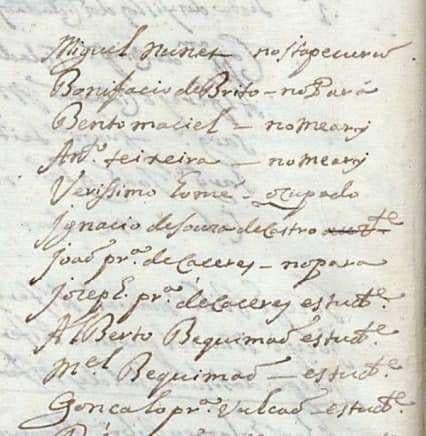 Miguel nunes – no Itapecuru
Bonifacio de Brito – no Pará
Bento maciel – no Meary
Antº. teixeira – no Meary
Verissimo Eomé – ocupado
Ignacio de Souza de Castro
Joaõ prª. de Caceres – no para
Joseph prª. de Caceres estudte.
Alberto Bequimaõ estudte.
Mel Bequimaõ – estudte.
Goncalo prª. Vulcaõ – estudte.